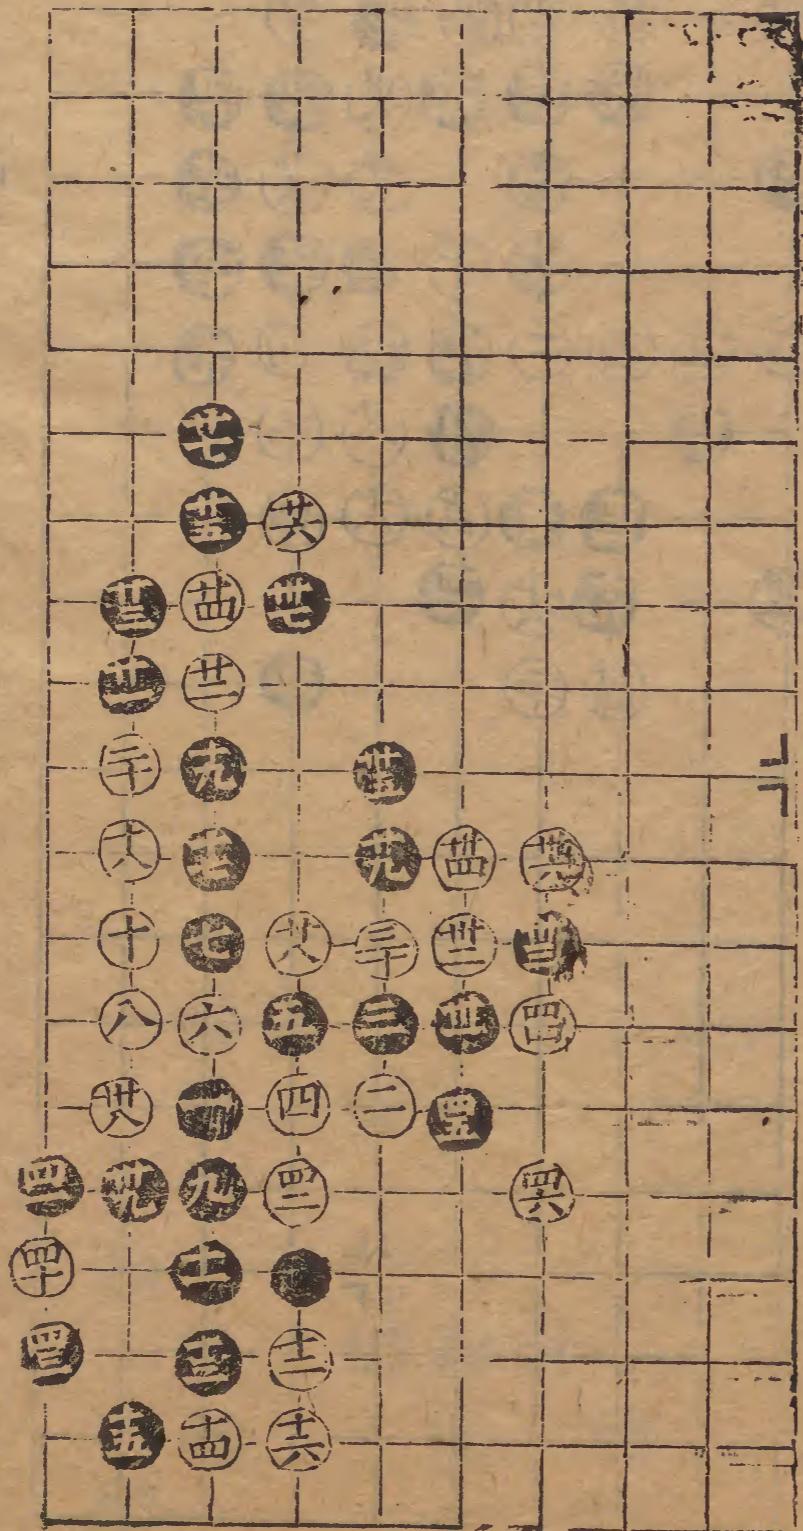 廿七
廿五 廿六
廿三 廿四 卅七
廿一 廿二
二十 十九 卅五
十八 十七 廿九 卅四 卅六
十 七 廿八 三十 卅二 卅三
八 六 五 三 卅一 四四
卅八 一 四 二 四五
四一 卅九 九 四二 四六
四十 十一
四三 十三 十二
十五 十四 十六